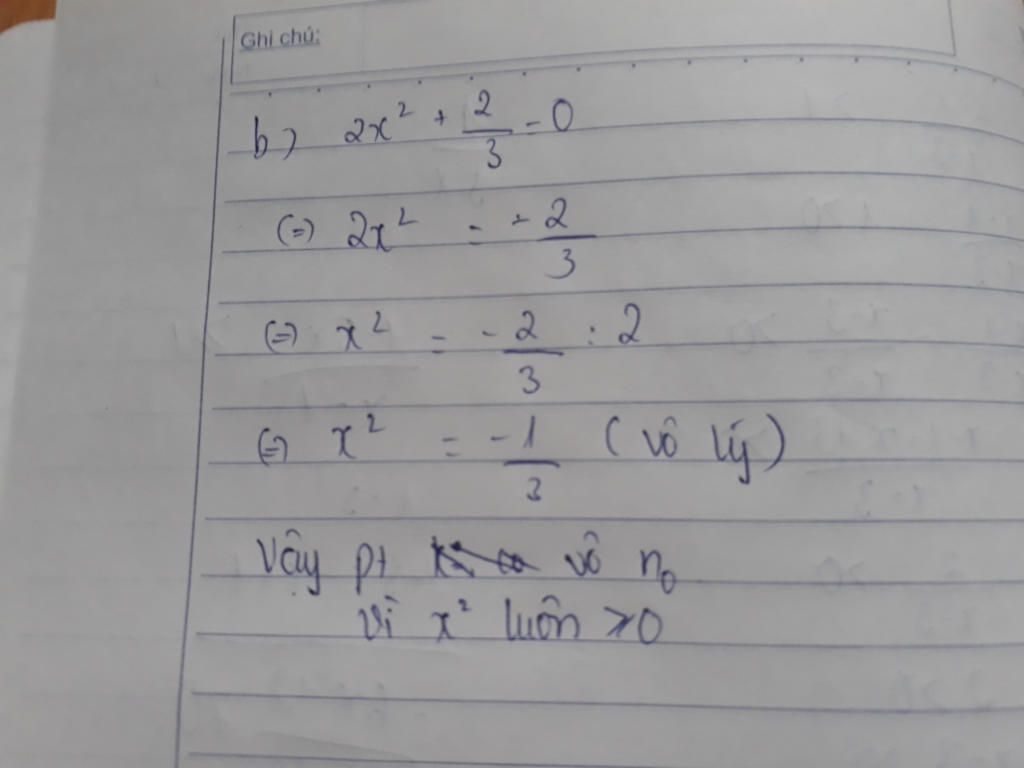 Ghi chú:
b) 2x² + 2/3 = 0
(=) 2x² = -2/3
(=) x² = -2/3 : 2
(=) x² = -1/3 (vô lý)
Vậy pt vô n₀
vì x² luôn ≥0